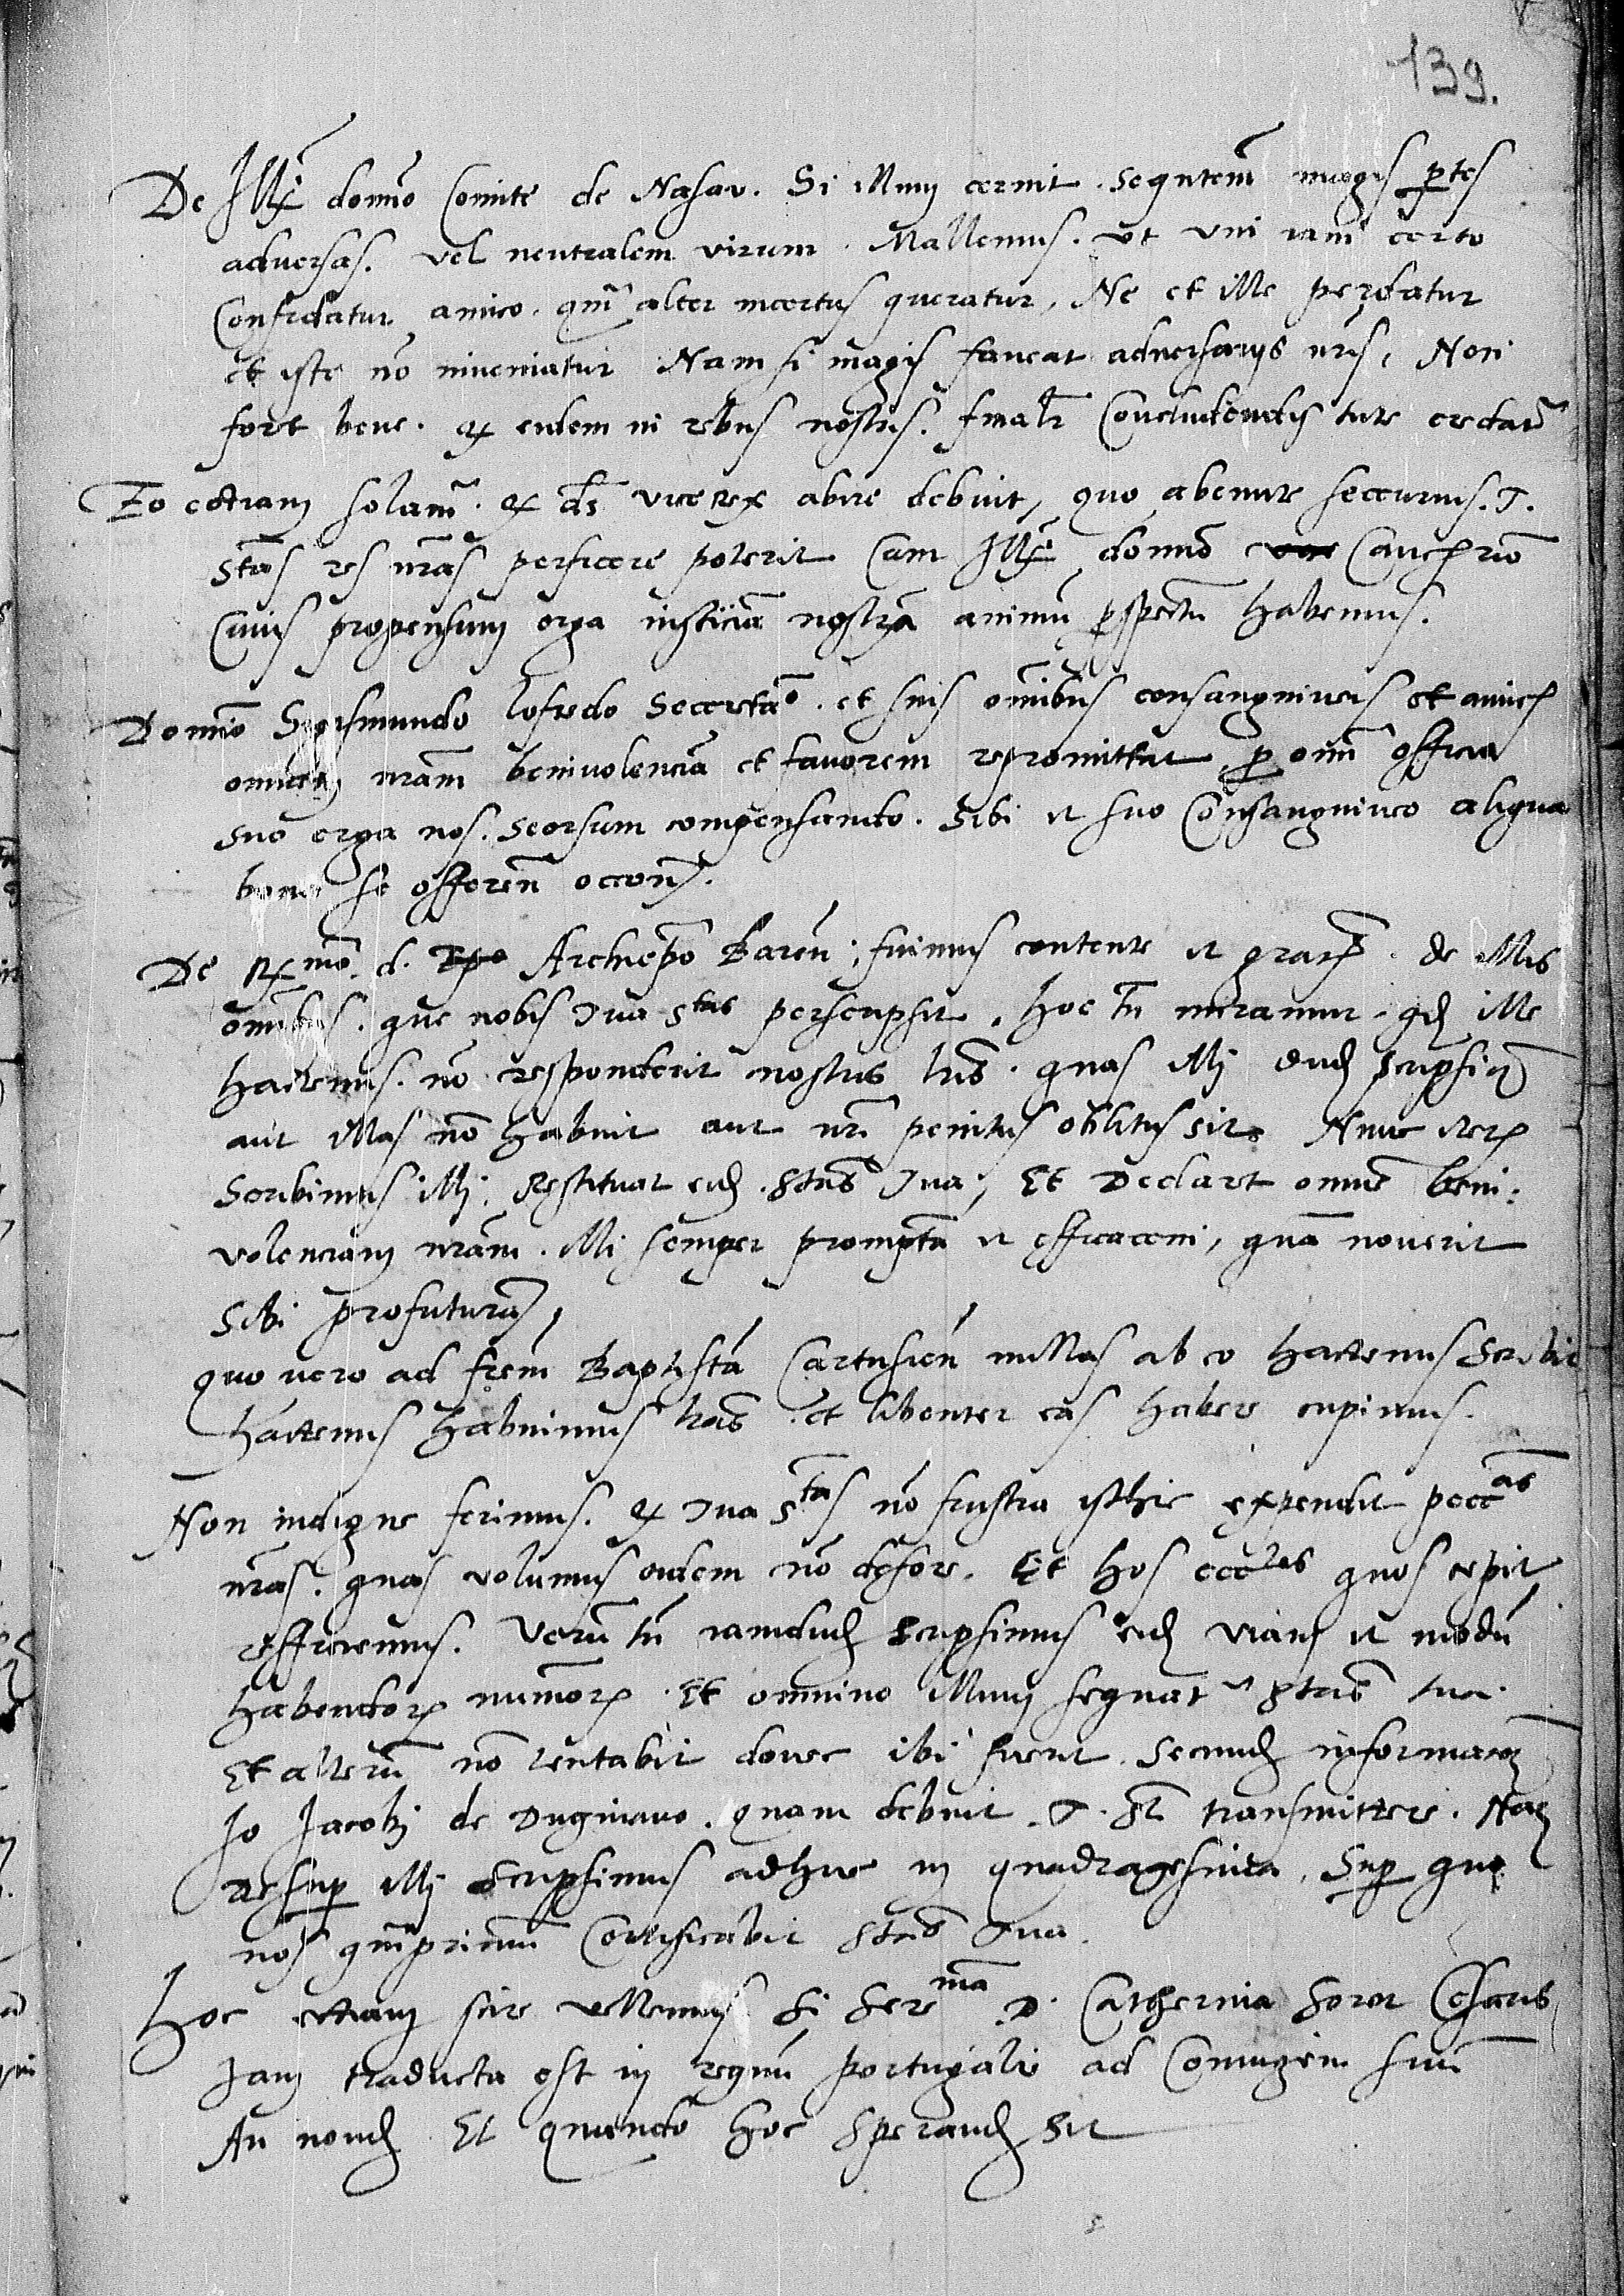 139.
De Illᵉ domino Comite de Nasau. Si illum cernit. sequtem̃ magis ptes
adversas. vel neutralem virum. Mallemus. ut uni iam certo
Confidatur amico. qm̃ alter incertus queratur, Ne et ille perdatur
et iste nõ inveniatur Nam si magis faveat adversarijs nr̃is, Non
fort bene. q eidem in rebus nostris. finalr̃ Concludendis tute credatur̃
Eo ectiam solam̃. q dñs vicerex abire debuit, quo abeunte securius. T.
Stas res nr̃as perficere poterit Cum Illᵉ domino Cancelrio
Cuius propensum erga iusticiã nostrã animũ pspectũ habemus.
Domino Sigismundo lofredo Secretaº. et suis omĩbus consanguineis et amicis
omnem nr̃am benivolenciã et favorem repromittat, p omĩ officia
suo erga nos. seorsum compensando. Sibi et suo Consanguineo aliqua
bona se offereñ occoñe.
De Rᵐᵒ. d. Archiepõ Bareñ; fuimus contente et grate. de illis
omĩbus. que nobis Tua Stas perscripsit. hoc tñ miramur. qd ille
hactenus. nõ responderit nostris lr̃is. quas illj dud scripsim
aut illas nõ habuit aut nr̃i penitus oblitus sit. Nunc iter
Scribimus illj, Restituat eid. Stas Tua, Et Declaret omnẽ beni:
volenciam nr̃am. illi semper promptã et efficacem, quã noverit
sibi profuturã,
quo vero ad frem̃ Baptistã Cartusieñ nullas ab eo hactenus
hactenus habuimus lr̃as. et libenter eas habere cupimus.
Non indigne ferimus. q Tua Stas nõ frustra isthic expendit pecᵃˢ
nr̃as. quas volumus eidem nõ defore. Et hos quos cepit
efficiemus. Verũ tñ iamdud scripsimus eid viam et modũ
habendor numor. Et omnino illum sequatᵘʳ Stas tua.
Et alterũ nõ tentabit donec ibi fuerit. Secund informacõ
Jo Jacobj de Dugnano. quam debuit. T. Stj transmittere. Nam
desup illj scripsimus adhuc in quadragesima, Sup quo
nos qm̃primum Certificabit Stas Tua.
Hoc ectiam scire vellemus si Serᵐᵃ D. Catherina soror Cesaris
Jam traducta est in regnũ portugalie ad Coniugem suũ
An nond Et quando hoc sperand sit